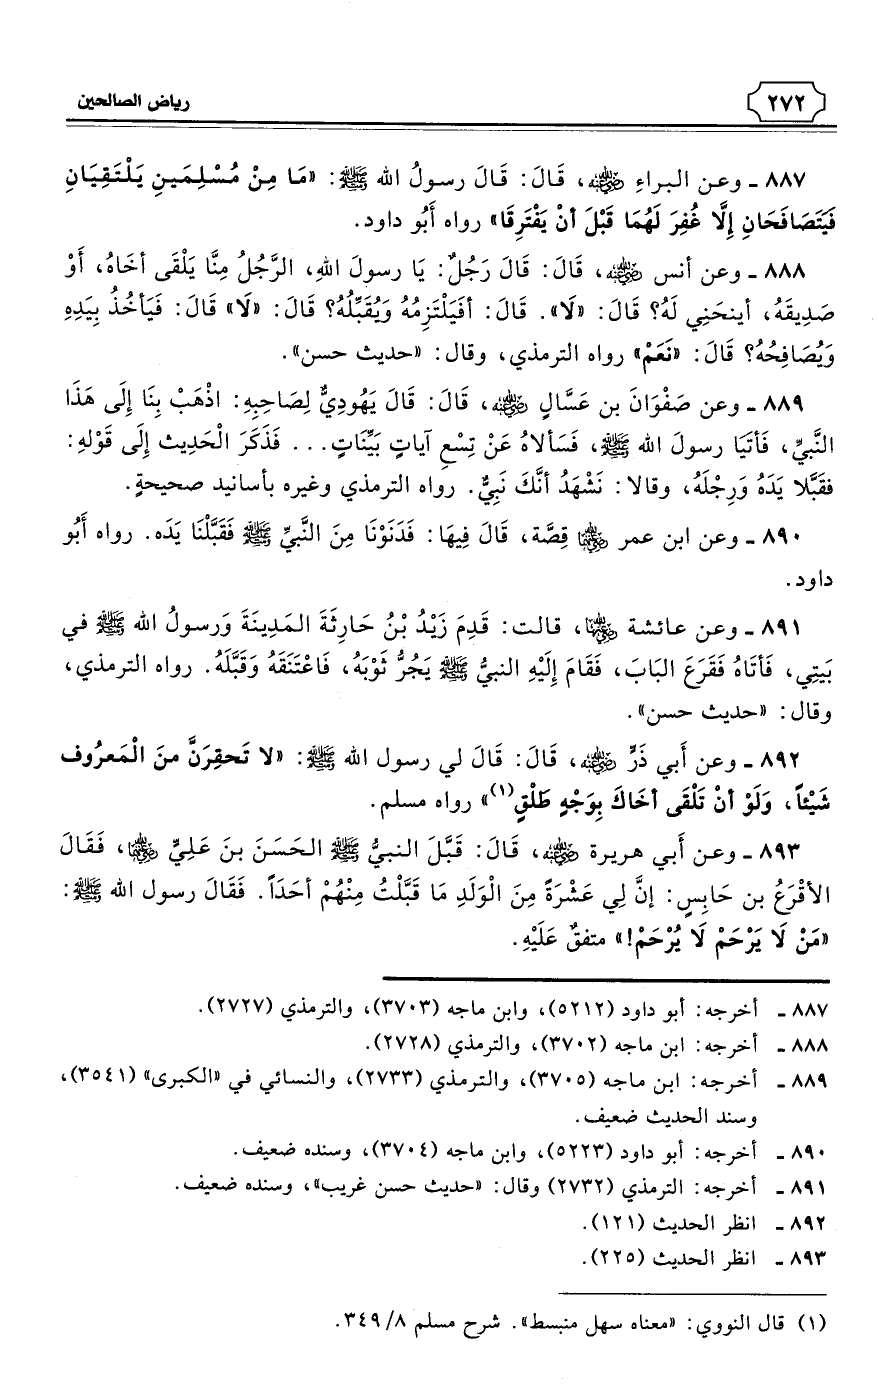 ٢٧٢
رياض الصالحين
٨٨٧ ـ وعن البراءِ رضي الله عنه، قَالَ: قَالَ رسولُ الله ﷺ: «مَا مِنْ مُسْلِمَينِ يَلْتَقِيَانِ
فَيَتَصَافَحَانِ إِلَّا غُفِرَ لَهُمَا قَبْلَ أنْ يَفْتَرِقَا» رواه أَبُو داود.
٨٨٨ ـ وعن أنس رضي الله عنه، قَالَ: قَالَ رَجُلٌ: يَا رسولَ اللهِ، الرَّجُلُ مِنَّا يَلْقَى أخَاهُ، أَوْ
صَدِيقَهُ، أينحَنِي لَهُ؟ قَالَ: «لَا». قَالَ: أفَيَلْتَزِمُهُ وَيُقَبِّلُهُ؟ قَالَ: «لَا» قَالَ: فَيَأخُذُ بِيَدِهِ
وَيُصَافِحُهُ؟ قَالَ: «نَعَمْ» رواه الترمذي، وقال: «حديث حسن».
٨٨٩ ـ وعن صَفْوَانَ بن عَسَّالٍ رضي الله عنه، قَالَ: قَالَ يَهُودِيٌّ لِصَاحِبِهِ: اذْهَبْ بِنَا إِلَى هَذَا
النَّبيِّ، فَأتَيَا رسولَ الله ﷺ، فَسَألاهُ عَنْ تِسْعِ آياتٍ بَيِّنَاتٍ... فَذَكَرَ الْحَدِيث إِلَى قَوْلهِ:
فقَبَّلا يَدَهُ وَرِجْلَهُ، وقالا: نَشْهَدُ أنَّكَ نَبِيٌّ. رواه الترمذي وغيره بأسانيد صحيحةٍ.
٨٩٠ ـ وعن ابن عمر رضي الله عنهما قِصَّة، قَالَ فِيهَا: فَدَنَوْنَا مِنَ النَّبيِّ ﷺ فَقَبَّلْنَا يَدَه. رواه أَبُو
داود.
٨٩١ ـ وعن عائشة رضي الله عنها، قالت: قَدِمَ زَيْدُ بْنُ حَارِثَةَ المَدِينَةَ وَرسولُ الله ﷺ في
بَيتِي، فَأتَاهُ فَقَرَعَ البَابَ، فَقَامَ إِلَيْهِ النبيُّ ﷺ يَجُرُّ ثَوْبَهُ، فَاعْتَنَقَهُ وَقَبَّلَهُ. رواه الترمذي،
وقال: «حديث حسن».
٨٩٢ ـ وعن أَبي ذَرٍّ رضي الله عنه، قَالَ: قَالَ لي رسول الله ﷺ: «لا تَحقِرَنَّ منَ الْمَعرُوف
شَيْئاً، وَلَوْ أنْ تَلْقَى أخَاكَ بِوَجْهٍ طَلْقٍ(١)» رواه مسلم.
٨٩٣ ـ وعن أَبي هريرة رضي الله عنه، قَالَ: قَبَّلَ النبيُّ ﷺ الحَسَنَ بنَ عَلِيٍّ رضي الله عنهما، فَقَالَ
الأقْرَعُ بن حَابِسٍ: إنَّ لِي عَشْرَةً مِنَ الْوَلَدِ مَا قَبَّلْتُ مِنْهُمْ أحَدَاً. فَقَالَ رسول الله ﷺ:
«مَنْ لَا يَرْحَمْ لَا يُرْحَمْ!» متفقٌ عَلَيْهِ.
٨٨٧ ـ أخرجه: أبو داود (٥٢١٢)، وابن ماجه (٣٧٠٣)، والترمذي (٢٧٢٧).
٨٨٨ ـ أخرجه: ابن ماجه (٣٧٠٢)، والترمذي (٢٧٢٨).
٨٨٩ ـ أخرجه: ابن ماجه (٣٧٠٥)، والترمذي (٢٧٣٣)، والنسائي في «الكبرى» (٣٥٤١)،
وسند الحديث ضعيف.
٨٩٠ ـ أخرجه: أبو داود (٥٢٢٣)، وابن ماجه (٣٧٠٤)، وسنده ضعيف.
٨٩١ ـ أخرجه: الترمذي (٢٧٣٢) وقال: «حديث حسن غريب»، وسنده ضعيف.
٨٩٢ ـ انظر الحديث (١٢١).
٨٩٣ ـ انظر الحديث (٢٢٥).
(١) قال النووي: «معناه سهل منبسط». شرح مسلم ٨/ ٣٤٩.